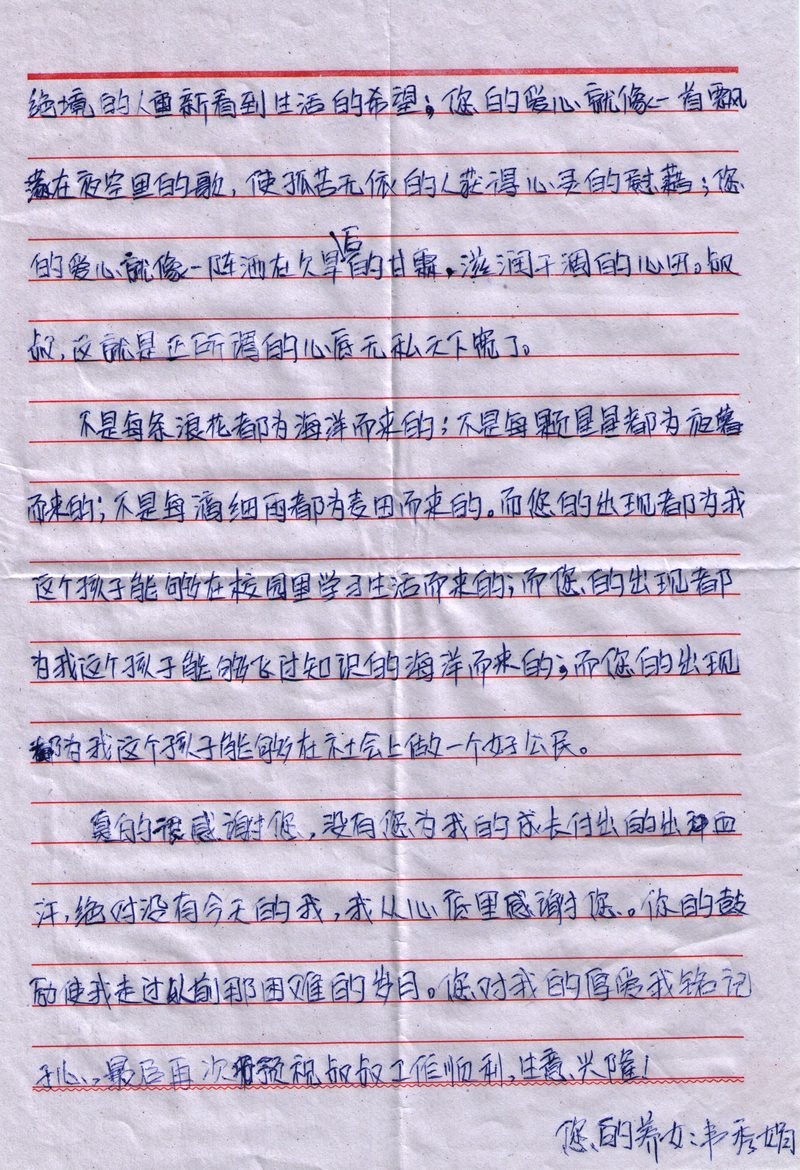 绝境的人重新看到生活的希望；您的爱心就像一首飘
荡在夜空里的歌，使孤苦无依的人获得心灵的慰藉；您
的爱心就像一阵洒在久旱后的甘霖，滋润干涸的心田。叔
叔，这就是正所谓的心底无私天下宽了。
不是每条浪花都为海洋而来的；不是每颗星星都为夜幕
而来的；不是每滴细雨都为麦田而来的。而您的出现都为我
这个孩子能够在校园里学习生活而来的；而您的出现都
为我这个孩子能够飞过知识的海洋而来的；而您的出现
都为我这个孩子能够在社会上做一个好公民。
真的很感谢您，没有您为我的成长付出的出血
汗，绝对没有今天的我，我从心底里感谢您。你的鼓
励使我走过以前那困难的岁月。您对我的厚爱我铭记
于心，最后再次预祝叔叔工作顺利，生意兴隆！
您的养女：韦秀娟